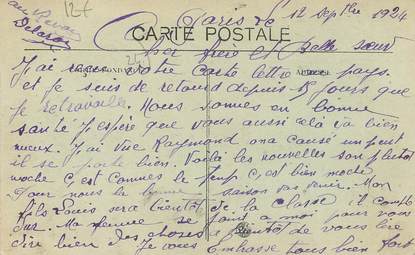 au Revoir
Delaroi
12€
Paris le 12 Septbre 1924
CARTE POSTALE
Cher frère et Belle sœur
J'ai reçu votre carte lettre au pays.
CORRESPONDANCE
et je suis de retour depuis 15 jours que
je retravaille. Nous sommes en bonne
santé J'espère que vous aussi celà va bien
mieux. J'ai vue Raymond on a causé un peut
il se porte bien. Voilà les nouvelles son plutot
moche c'est commes le temp c'est bien moche
pour nous la bonne saison va finir. Mon
fils Louis sera bientôt de la classe il compte
sur. Ma femme se joint a moi pour vous
dire bien des choses a bientôt de vous lire
Je vous Embrasse tous bien fort